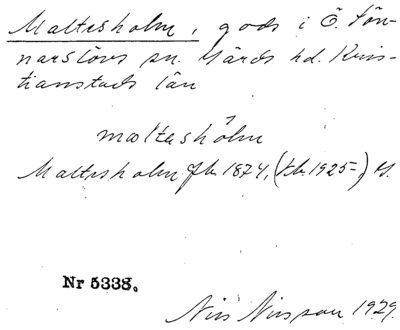 Maltesholm, gods i Ö. Sön-
narslövs sn. Gärds hd. Kris-
tianstads län
maltəshȯlm
Maltesholm Jb. 1874, (Jb. 1925-)
Nr 5338.
Nils Nilsson 1929.